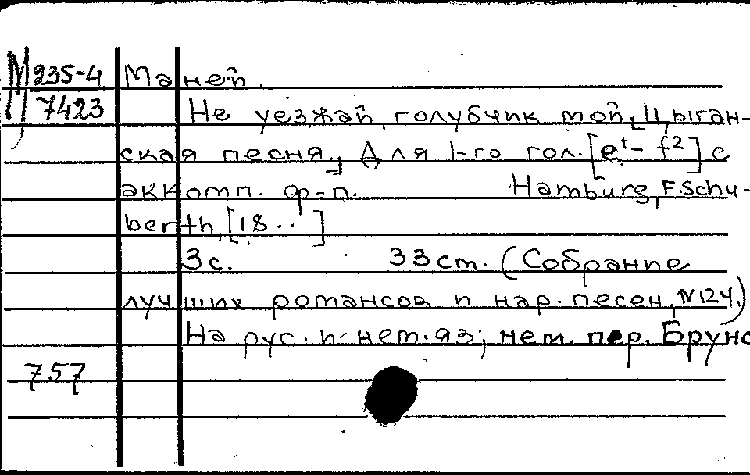 М 235-4 Маней.
7423 Не уезжай, голубчик мой, [Цыган-
ская песня.] Для 1-го гол. [e¹- f²] с
аккомп. ф-п. Hamburg, F. Schu-
berth, [18..]
3с. 33ст. (Собрание
лучших романсов и нар. песен, N124.)
На рус. и нем. яз; нем. пер. Бруно
7.57